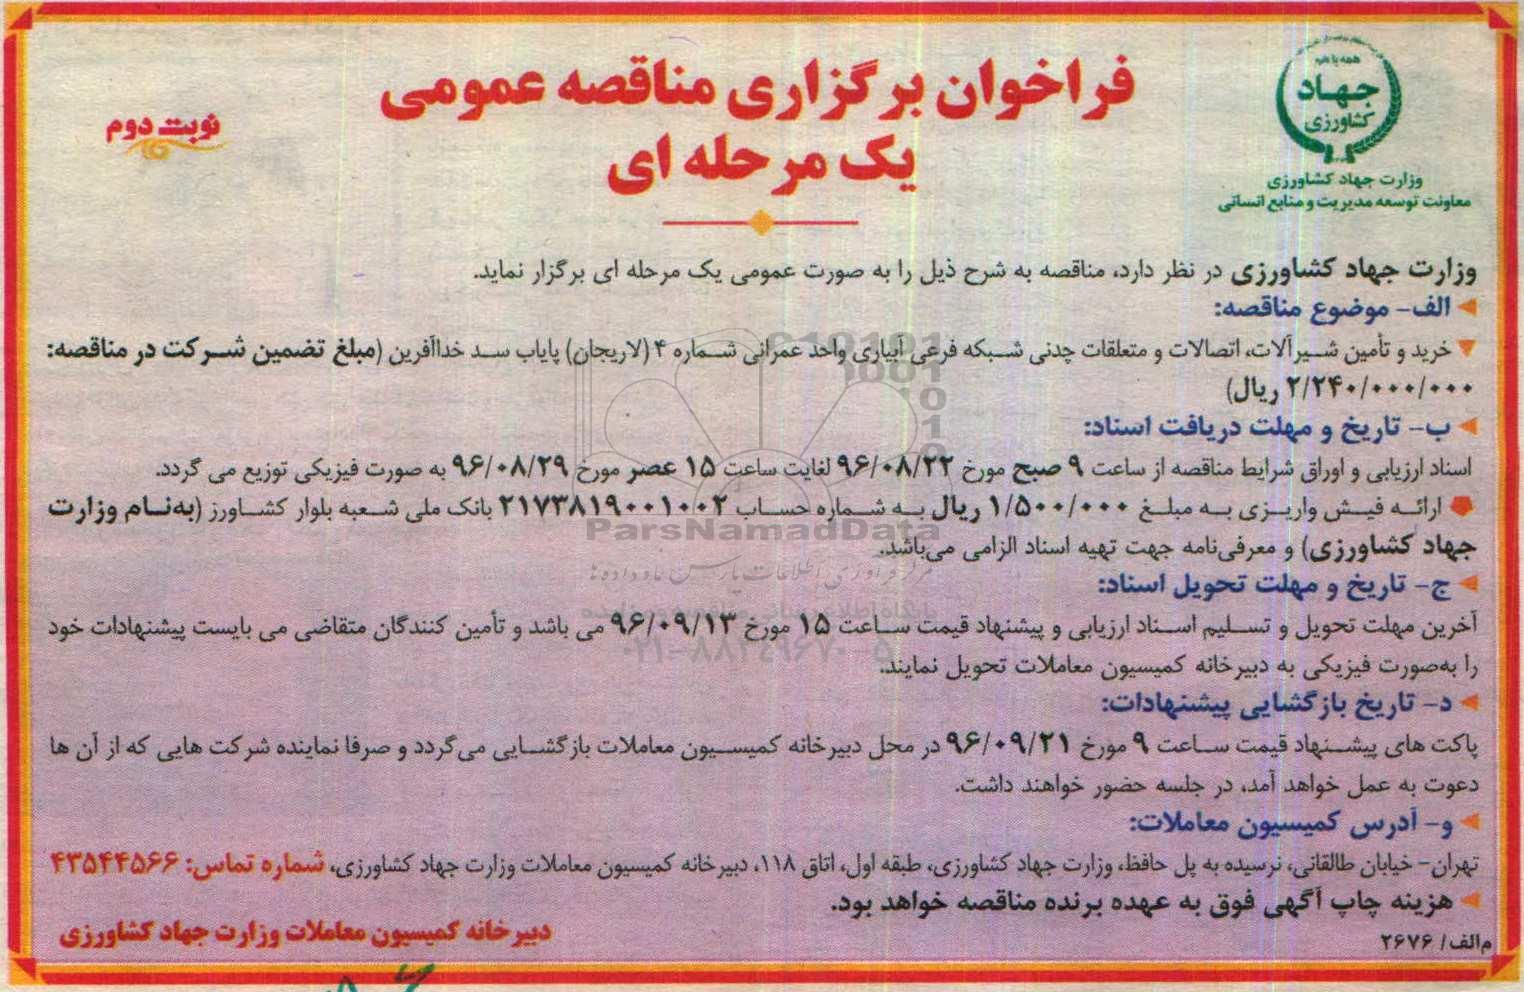 همه با هم
جهاد
کشاورزی
وزارت جهاد کشاورزی
معاونت توسعه مدیریت و منابع انسانی
فراخوان برگزاری مناقصه عمومی
یک مرحله ای
نوبت دوم
وزارت جهاد کشاورزی در نظر دارد، مناقصه به شرح ذیل را به صورت عمومی یک مرحله ای برگزار نماید.
الف- موضوع مناقصه:
خرید و تأمین شیرآلات، اتصالات و متعلقات چدنی شبکه فرعی آبیاری واحد عمرانی شماره ۴ (لاریجان) پایاب سد خداآفرین (مبلغ تضمین شرکت در مناقصه:
۲/۲۴۰/۰۰۰/۰۰۰ ریال)
ب- تاریخ و مهلت دریافت اسناد:
اسناد ارزیابی و اوراق شرایط مناقصه از ساعت ۹ صبح مورخ ۹۶/۰۸/۲۲ لغایت ساعت ۱۵ عصر مورخ ۹۶/۰۸/۲۹ به صورت فیزیکی توزیع می گردد.
ارائه فیش واریزی به مبلغ ۱/۵۰۰/۰۰۰ ریال به شماره حساب ۲۱۷۳۸۱۹۰۰۱۰۰۲ بانک ملی شعبه بلوار کشاورز (به‌نام وزارت
جهاد کشاورزی) و معرفی‌نامه جهت تهیه اسناد الزامی می‌باشد.
ParsNamadData
مرکز فرآوری اطلاعات پارس نماد داده ها
ج- تاریخ و مهلت تحویل اسناد:
آخرین مهلت تحویل و تسلیم اسناد ارزیابی و پیشنهاد قیمت ساعت ۱۵ مورخ ۹۶/۰۹/۱۳ می باشد و تأمین کنندگان متقاضی می بایست پیشنهادات خود
را به‌صورت فیزیکی به دبیرخانه کمیسیون معاملات تحویل نمایند.
د- تاریخ بازگشایی پیشنهادات:
پاکت های پیشنهاد قیمت ساعت ۹ مورخ ۹۶/۰۹/۲۱ در محل دبیرخانه کمیسیون معاملات بازگشایی می‌گردد و صرفا نماینده شرکت هایی که از آن ها
دعوت به عمل خواهد آمد، در جلسه حضور خواهند داشت.
و- آدرس کمیسیون معاملات:
تهران- خیابان طالقانی، نرسیده به پل حافظ، وزارت جهاد کشاورزی، طبقه اول، اتاق ۱۱۸، دبیرخانه کمیسیون معاملات وزارت جهاد کشاورزی، شماره تماس: ۴۳۵۴۴۵۶۶
هزینه چاپ آگهی فوق به عهده برنده مناقصه خواهد بود.
م‌الف/ ۲۶۷۶
دبیرخانه کمیسیون معاملات وزارت جهاد کشاورزی